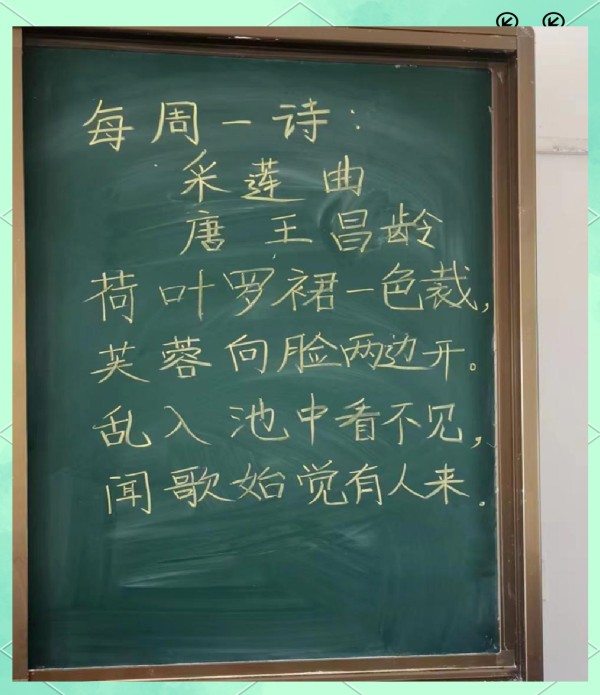 每周一诗：
采莲曲
唐 王昌龄
荷叶罗裙一色裁，
芙蓉向脸两边开。
乱入池中看不见，
闻歌始觉有人来.